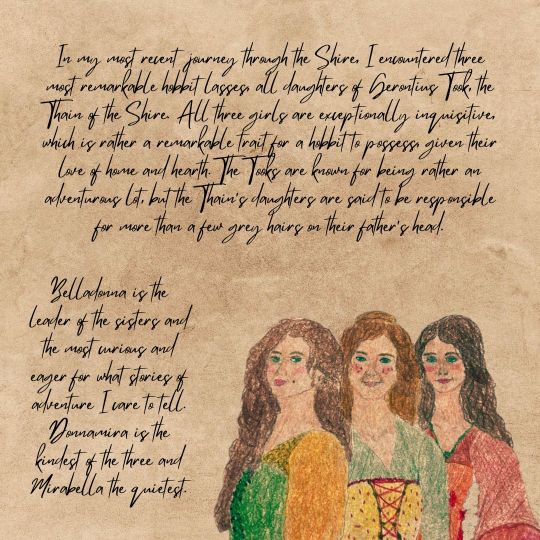 In my most recent journey through the Shire, I encountered three
most remarkable hobbit lasses, all daughters of Gerontius Took, the
Thain of the Shire. All three girls are exceptionally inquisitive,
which is rather a remarkable trait for a hobbit to possess, given their
love of home and hearth. The Tooks are known for being rather an
adventurous lot, but the Thain's daughters are said to be responsible
for more than a few grey hairs on their father's head.
Belladonna is the
leader of the sisters and
the most curious and
eager for what stories of
adventure I care to tell.
Donnamira is the
kindest of the three and
Mirabella the quietest.